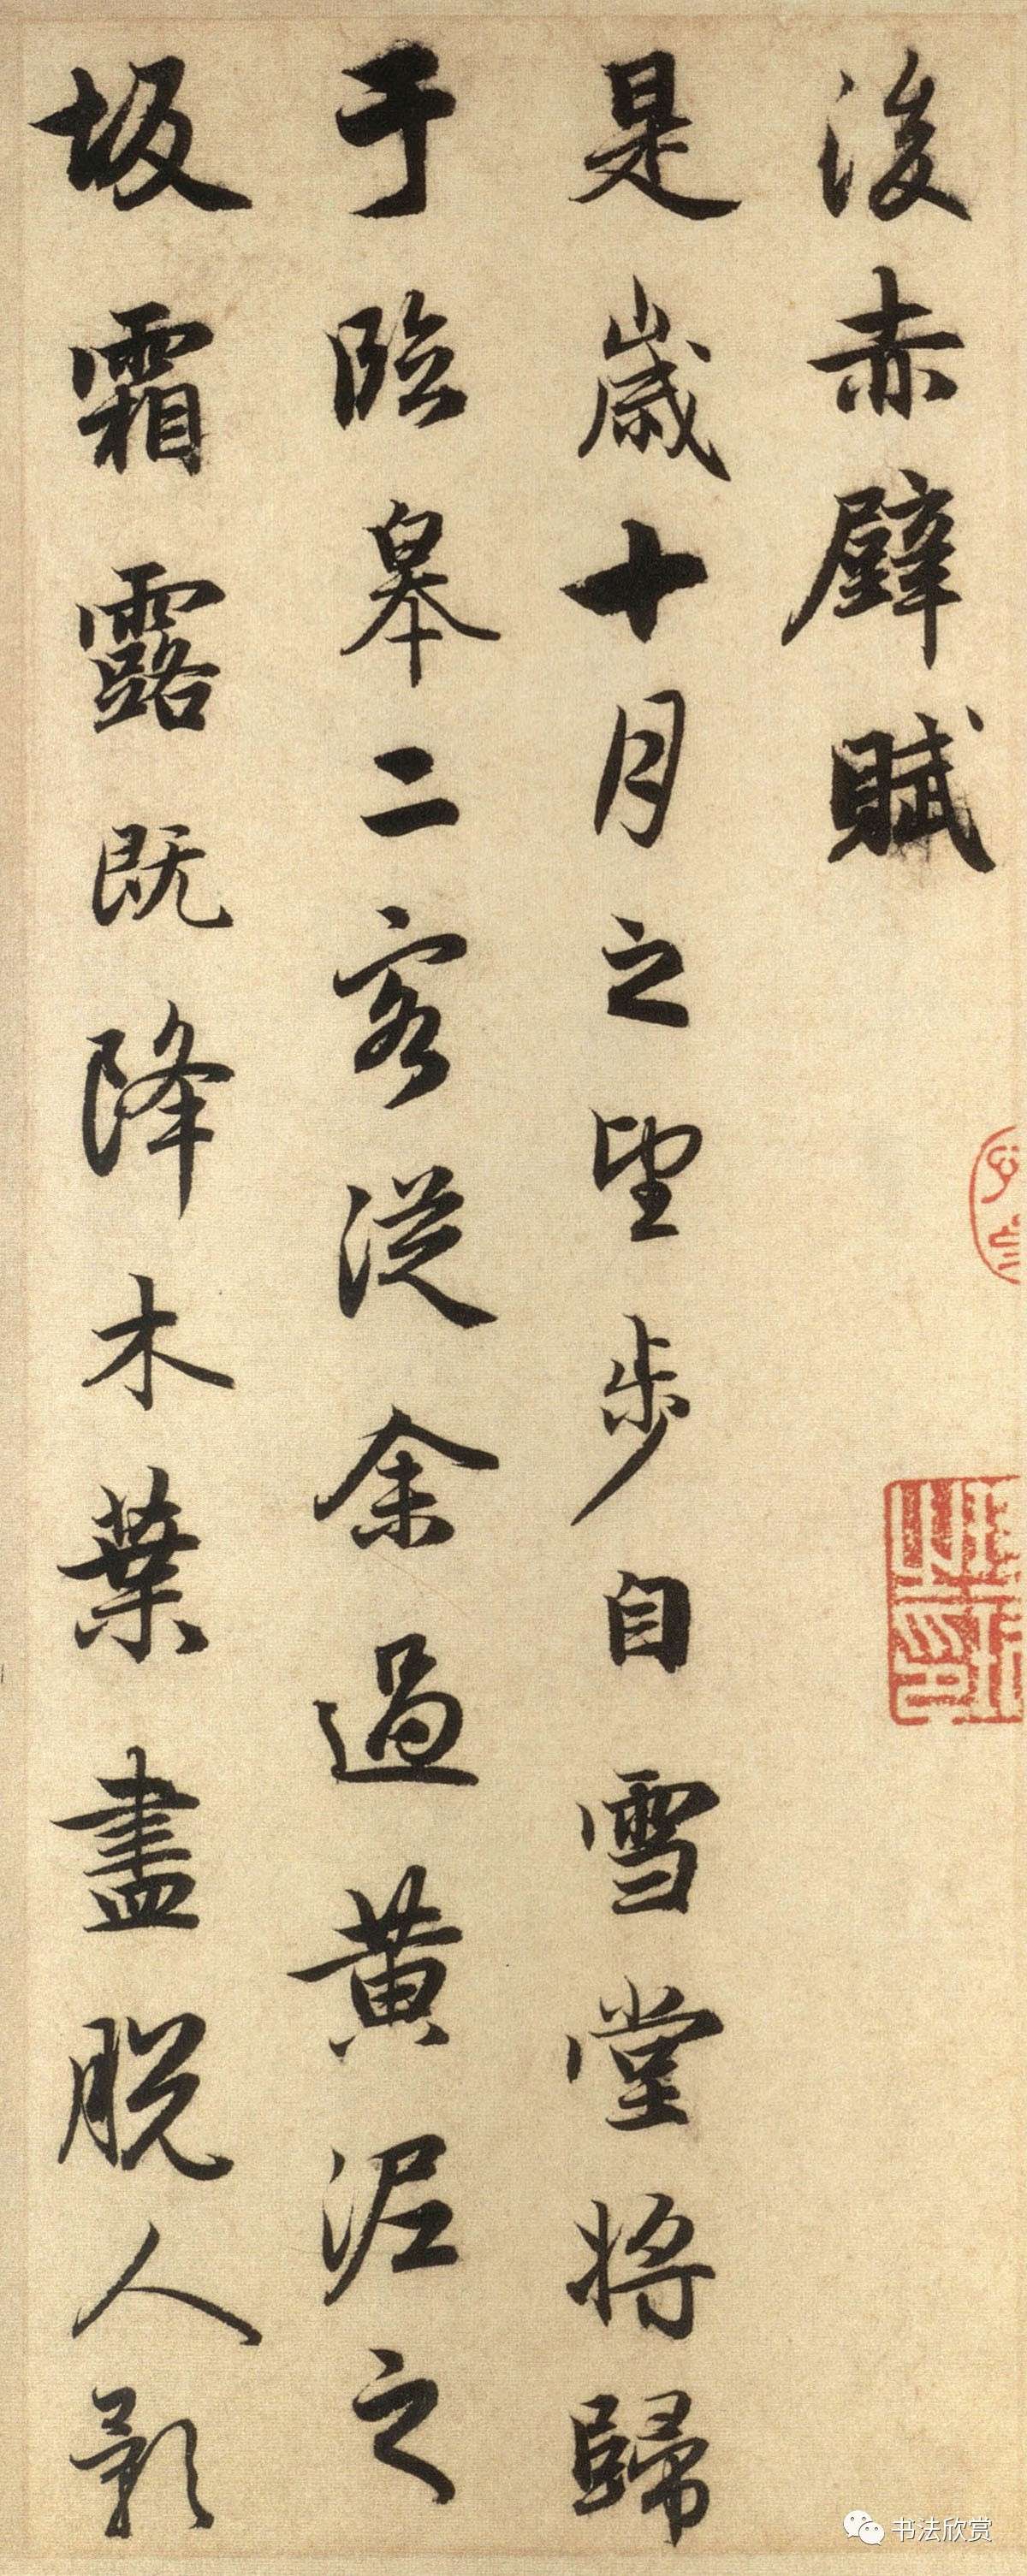 後赤壁賦
是歲十月之望步自雪堂將歸
于臨皋二客從余過黃泥之
坂霜露既降木葉盡脫人影
书法欣赏